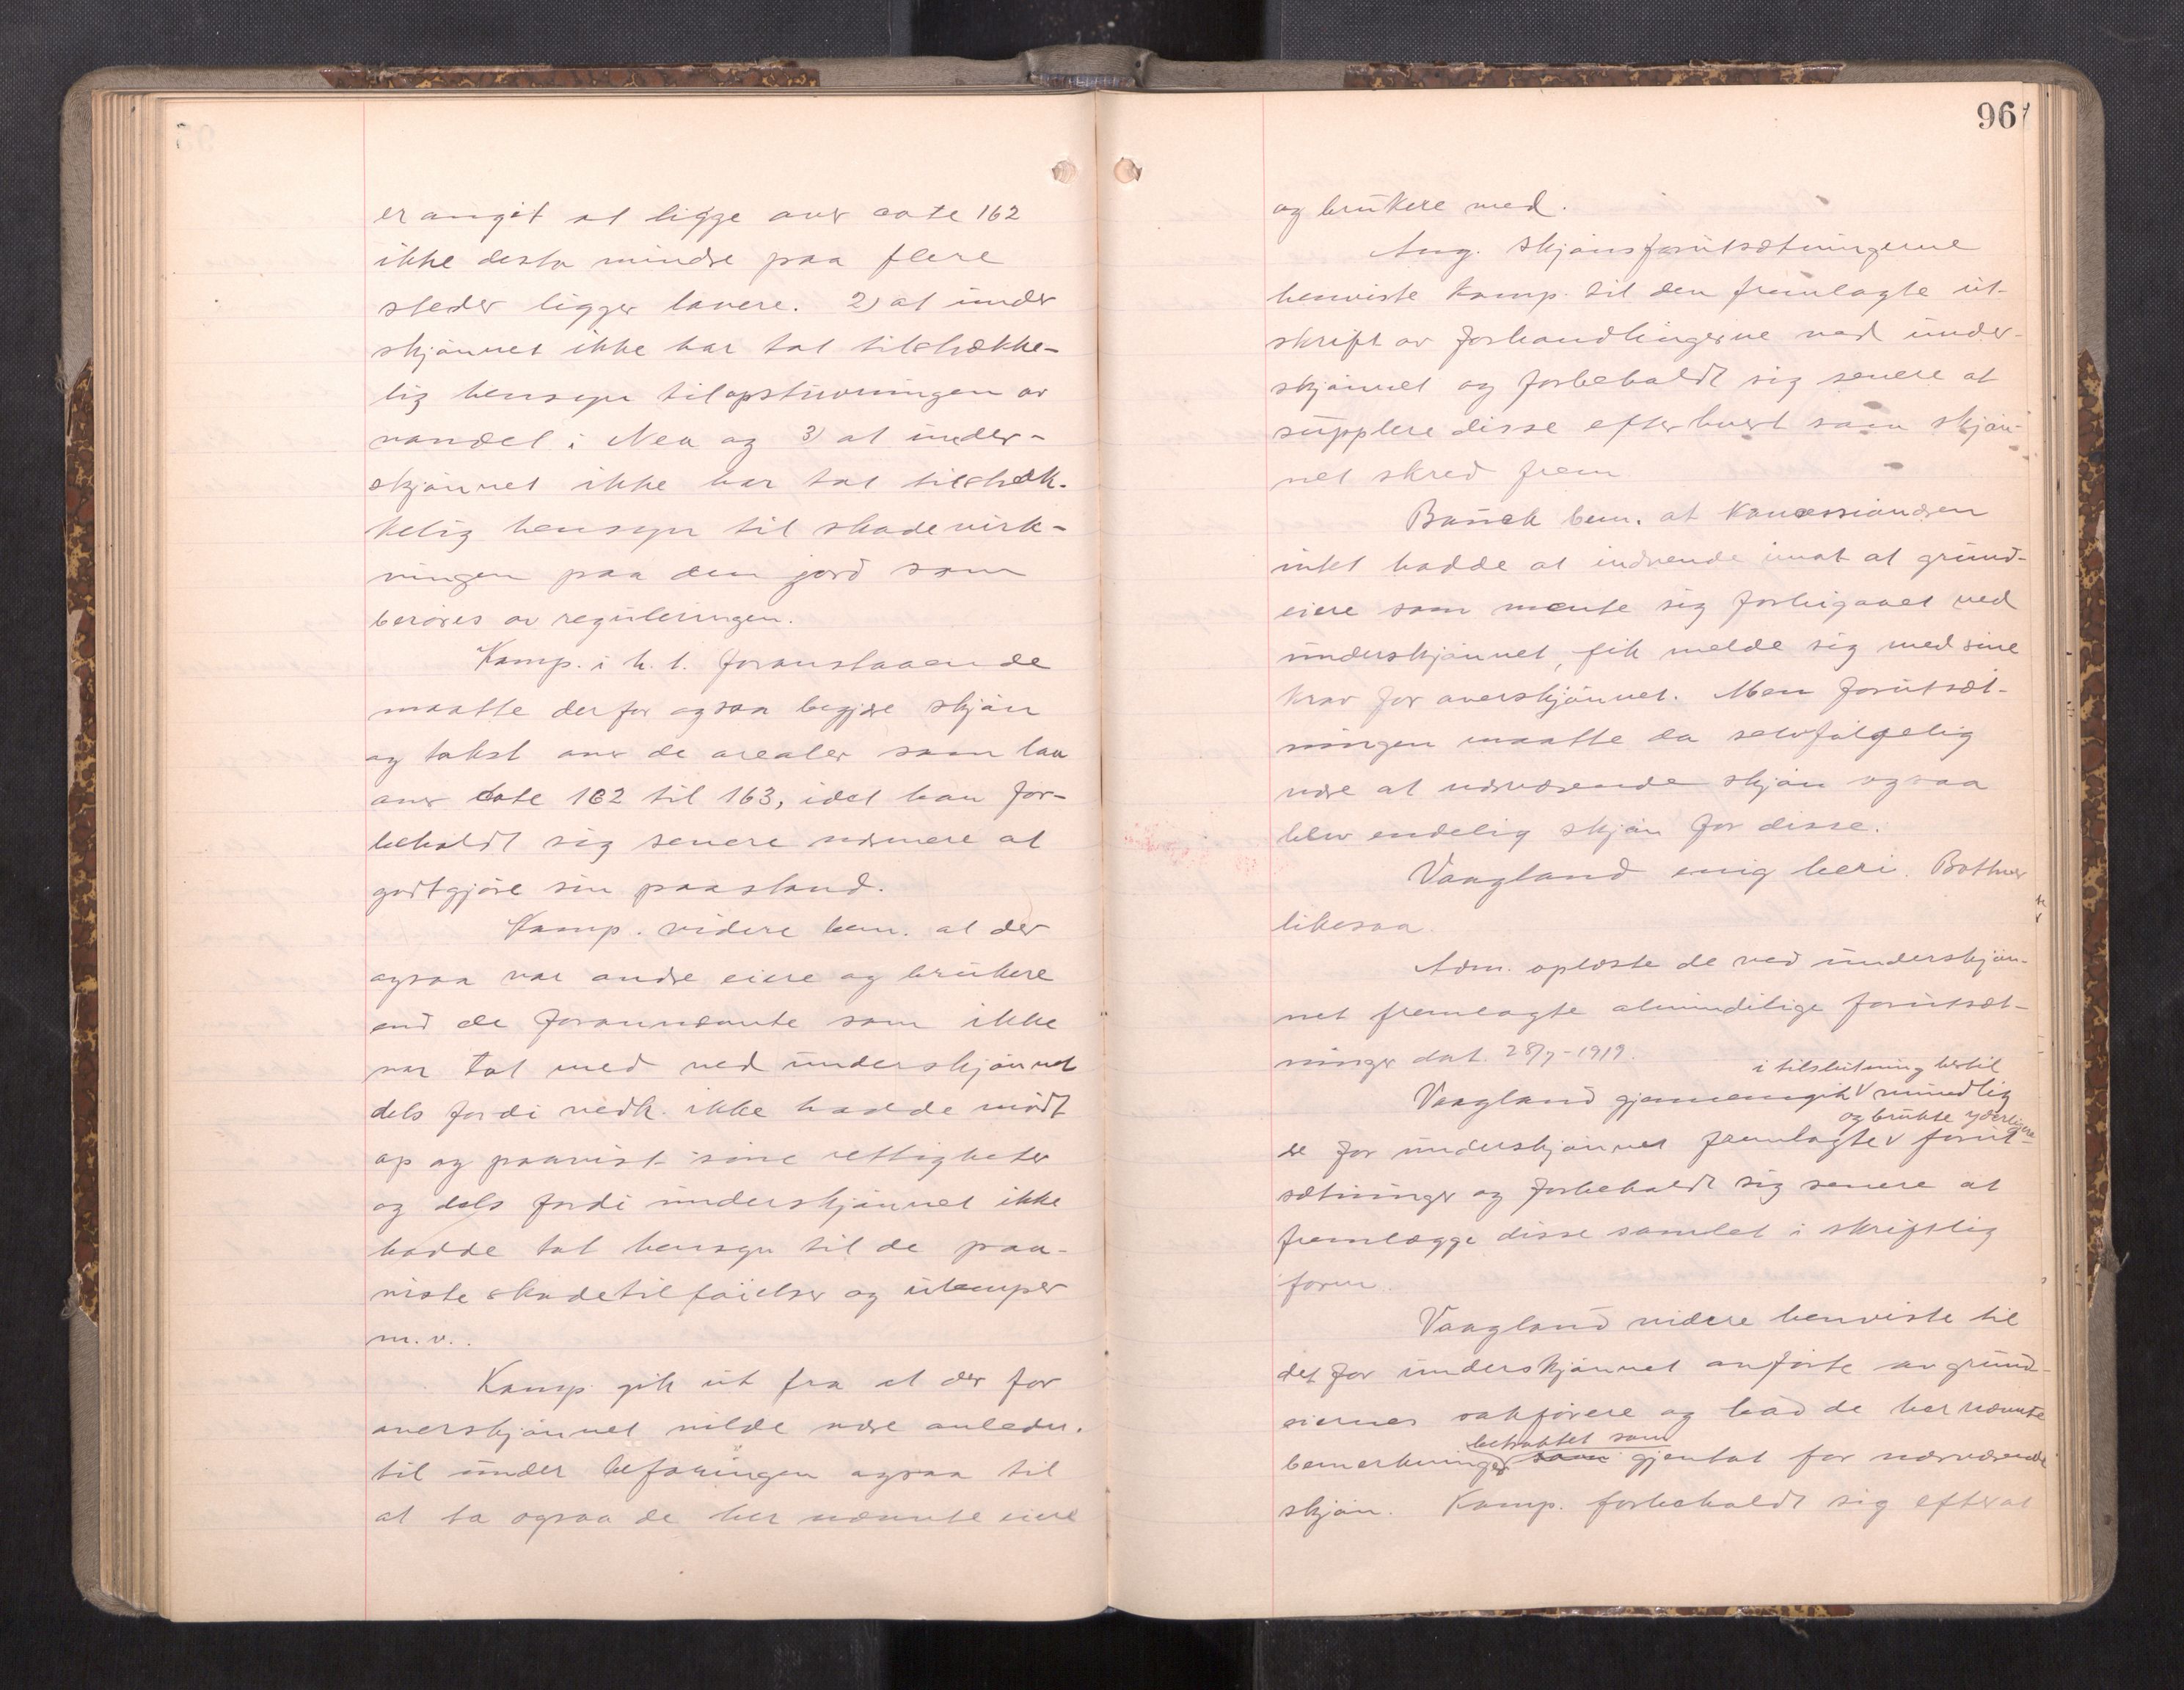 er angit at ligge over cote 162
ikke desto mindre paa flere
steder ligger lavere. 2) at under
skjønnet ikke har tat tilstrække-
lig hensyn til opstuvningen av
vandet i Nea og 3) at under-
skjønnet ikke har tat tilstræk-
kelig hensyn til skadevirk-
ningen paa den jord som
berøres av reguleringen.
Kamp. i h. t. foranstaaende
maatte derfor ogsaa begjære skjøn
og takst over de arealer som laa
over cote 162 til 163, idet han for-
beholdt sig senere nærmere at
godtgjøre sin paastand.
Kamp. videre bem. at der
ogsaa var andre eiere og brukere
end de forannævnte som ikke
var tat med ved underskjønnet
dels fordi vedk. ikke hadde mødt
op og paavist sine rettigheter
og dels fordi underskjønnet ikke
hadde tat hensyn til de paa-
viste skadetilføielser og ulemper
m. v..
Kamp. gik ut fra at der for
overskjønnet vilde være anledn.
til under befaringen ogsaa til
at ta ogsaa de her nævnte eiere
96
og brukere med.
Ang. skjønsforutsætningerne
henviste Kamp. til den fremlagte ut-
skrift av forhandlingerne ved under-
skjønnet og forbeholdt sig senere at
supplere disse efterhvert som skjøn-
net skred frem
bem. at Koncessionæren
intet hadde at indvende imot at grund-
eiere som mente sig forbigaaet ved
underskjønnet, fik melde sig med sine
krav for overskjønnet. Men forutsæt-
ningen maatte da selvfølgelig
være at nærværende skjøn ogsaa
blev endelig skjøn for disse.
Vaagland enig heri. Bothner
likesaa.
Adm. oplæste de ved underskjøn-
net fremlagte almindelige forutsæt-
ninger dat. 28/7-1919.
i tilslutning hertil
Vaagland gjennemgik v mundlig
og brukte yderligere
de for underskjønnet fremlagte v forut-
sætninger og forbeholdt sig senere at
fremlægge disse samlet i skriftlig
form.
Vaagland videre henviste til
det for underskjønnet anførte av grund-
eiernes sakførere og bad de her nævnte
betraktet som
bemerkninger som gjentat for nærværende
skjøn. Kamp. forbeholdt sig efter at